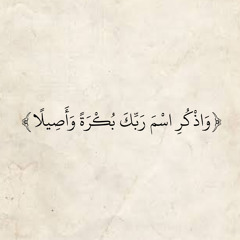 ﴿وَاذْكُرِ اسْمَ رَبِّكَ بُكْرَةً وَأَصِيلًا﴾